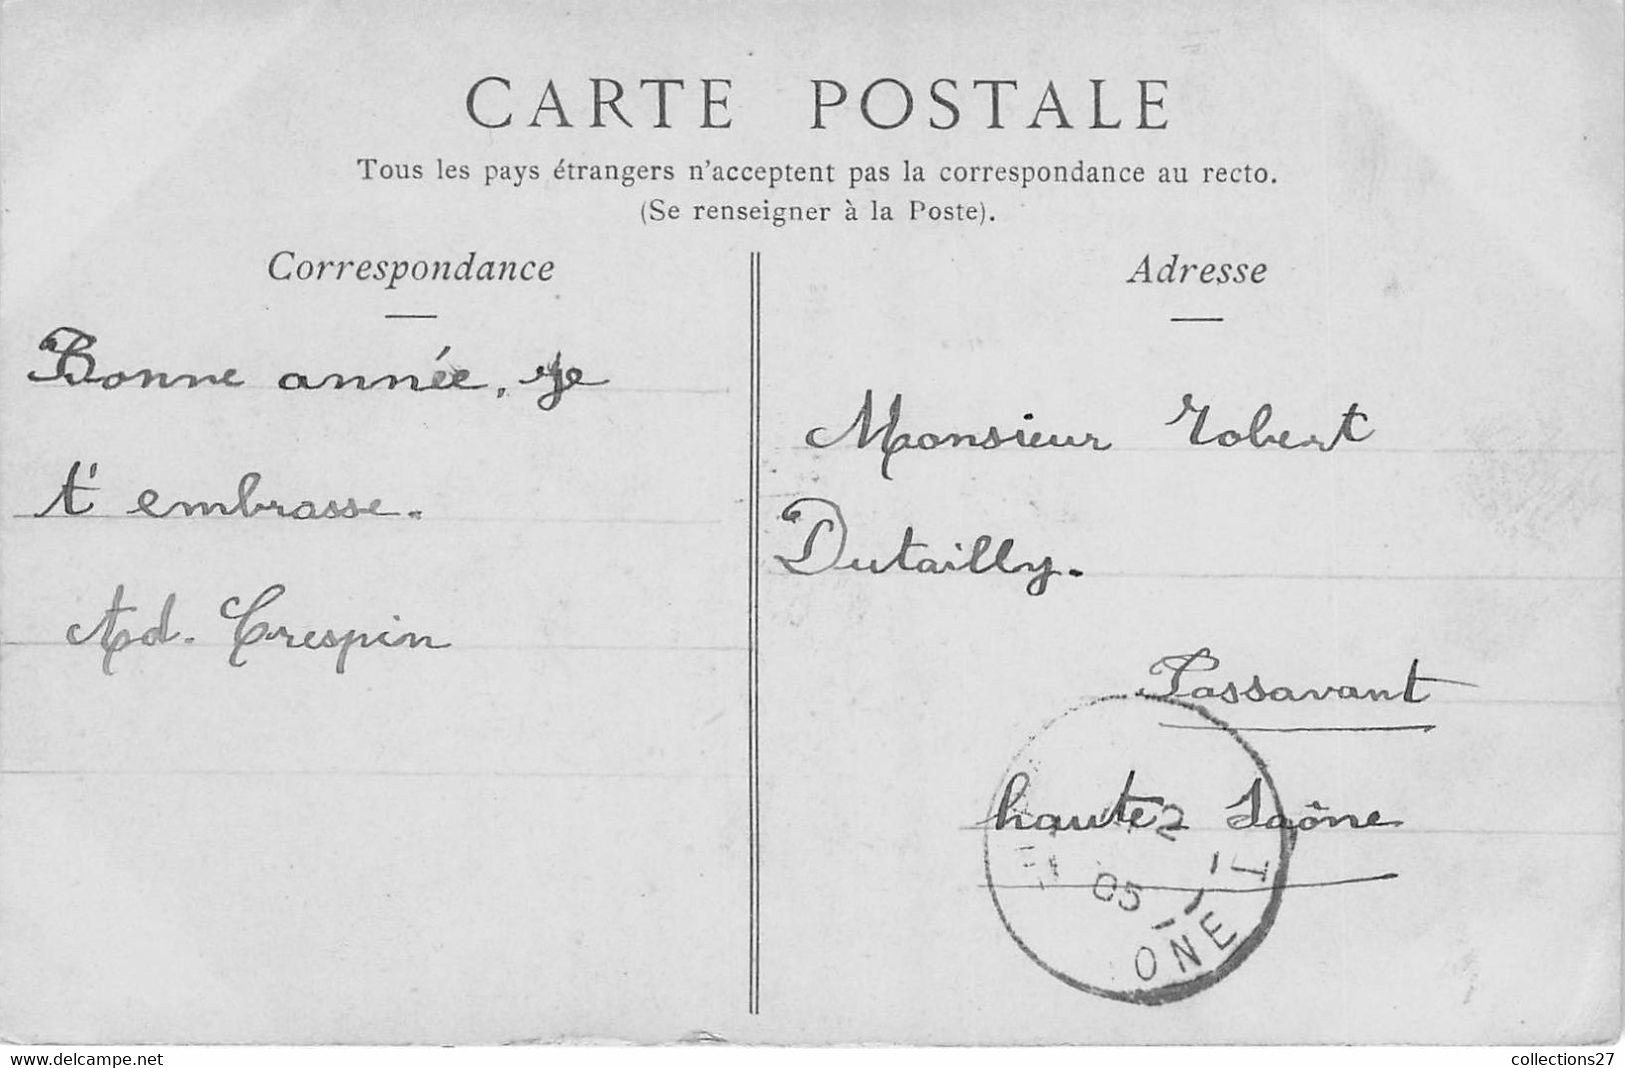 CARTE POSTALE
Tous les pays étrangers n'acceptent pas la correspondance au recto.
(Se renseigner à la Poste).
Correspondance
Bonne année, je
t'embrasse.
Ad. Crespin
Adresse
Monsieur Robert
Dutailly.
Passavant
haute Saône
05
ONE
www.delcampe.net
collections27